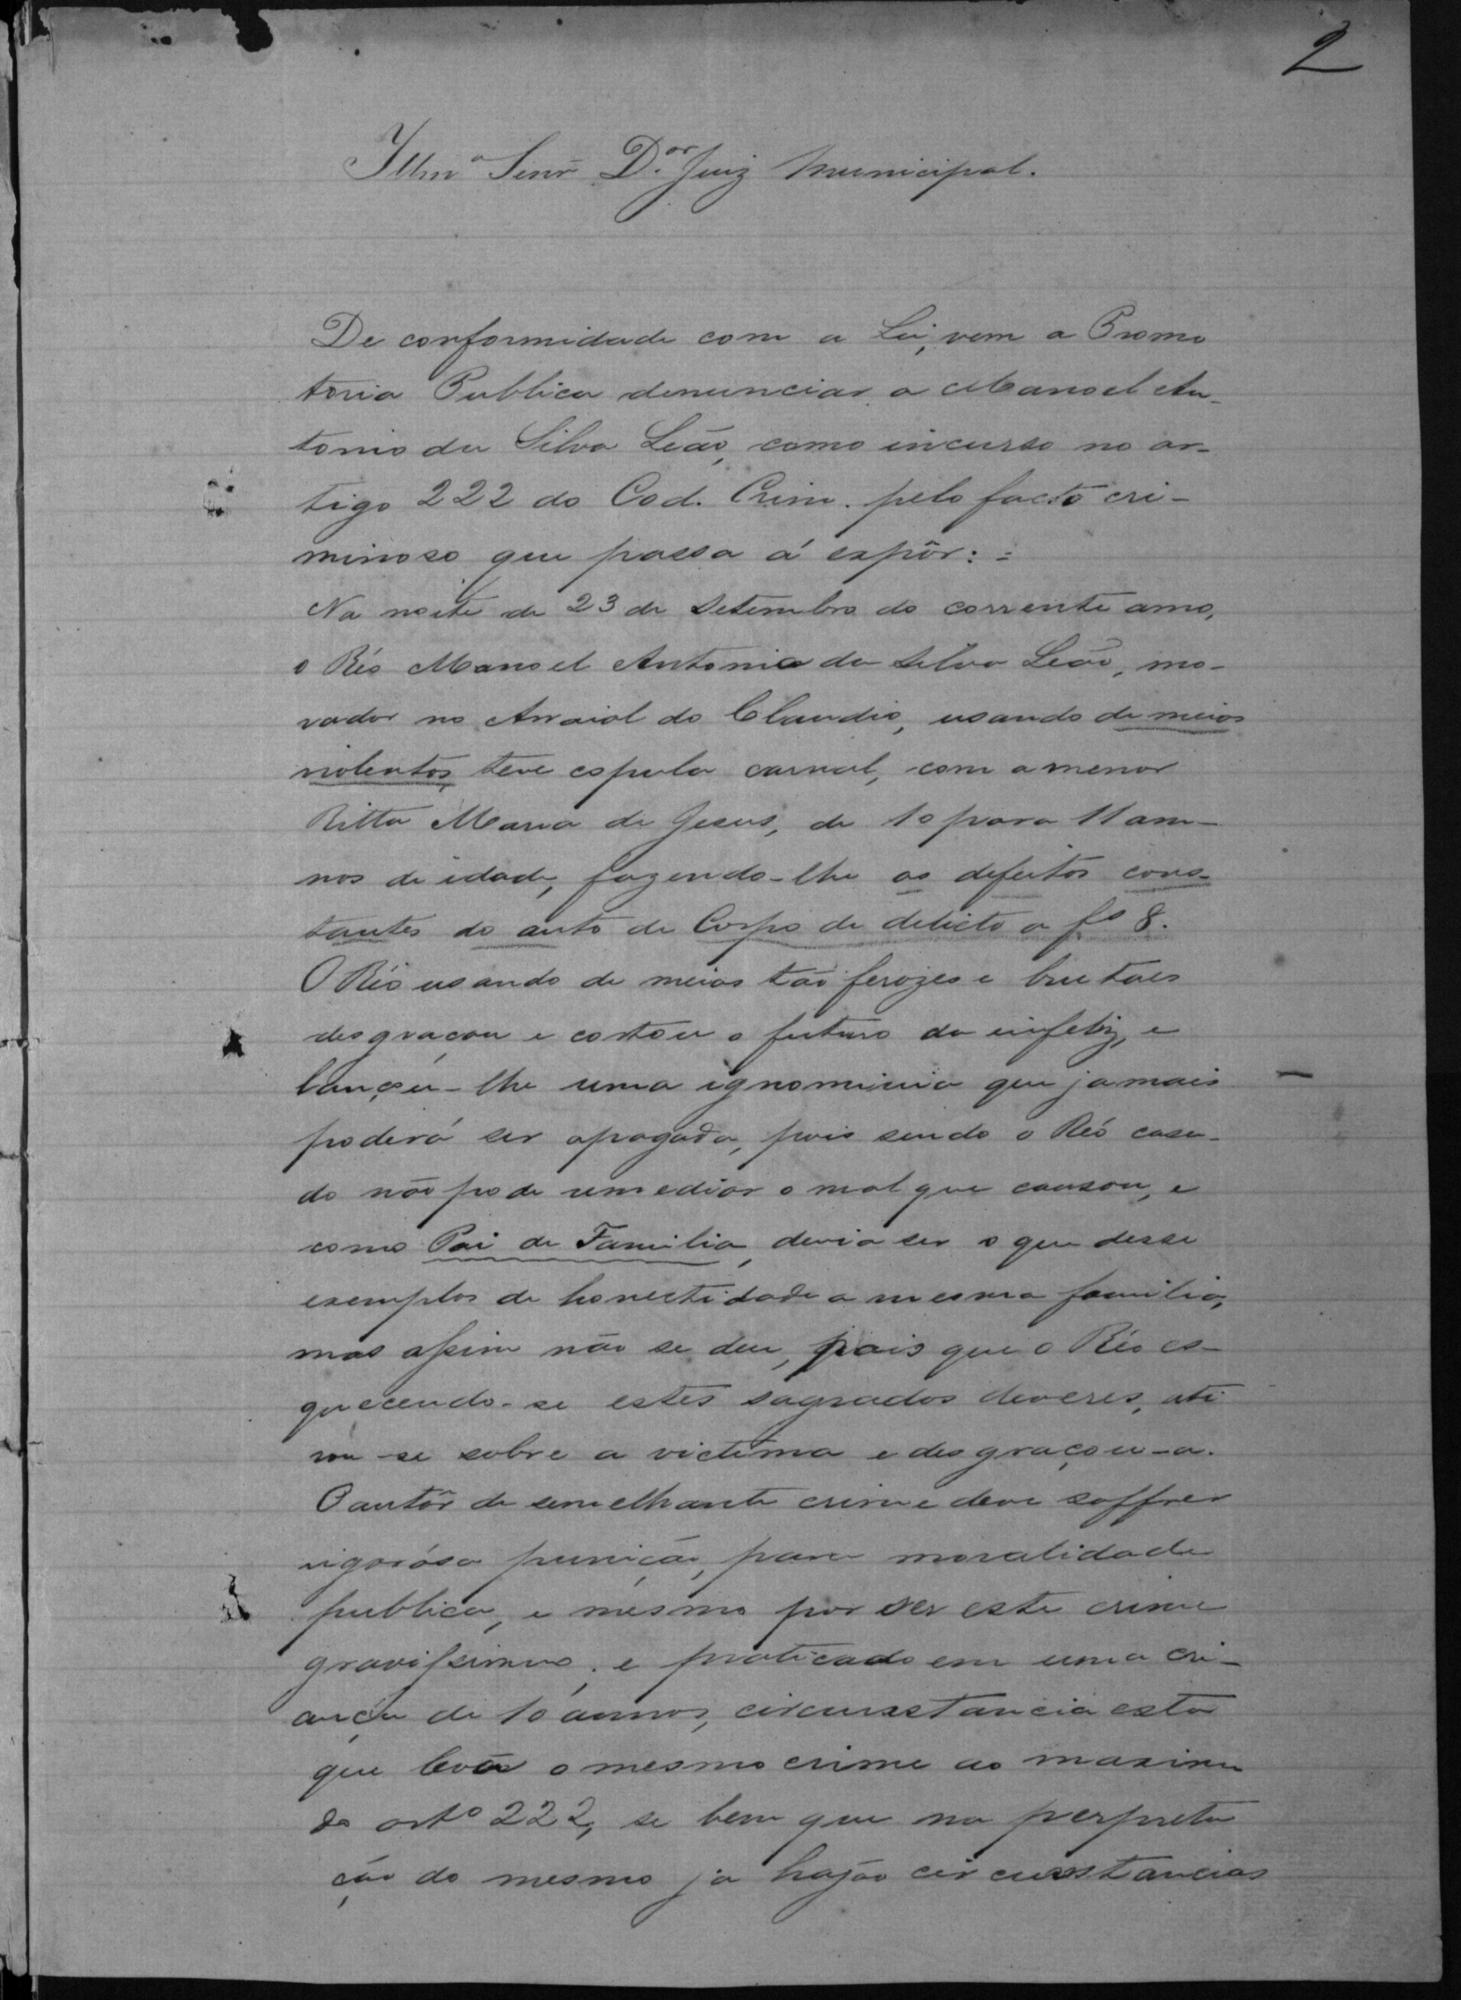 2
Illmº Senr. D.or Juiz Municipal.
De conformidade com a Lei, vem a Promo
toria Publica denunciar a Manoel An-
tonio da Silva Leão, como incurso no ar-
tigo 222 do Cod. Crim. pelo facto cri-
minoso que passa á expôr: =
Na noite de 23 de Setembro do corrente anno,
o Réo Manoel Antonio da Silva Leão, mo-
rador no Arraial do Claudio, usando de meios
violentos, teve copula carnal, com a menor
Ritta Maria de Jesus, de 10 para 11 an-
nos de idade, fazendo-lhe os defeitos cons-
tantes do auto de Corpo de delicto a fs 8.
O Réo usando de meios tão ferozes e brutaes
desgraçou e cortou o futuro da infeliz, e
lançou-lhe uma ignominia que jamais
poderá ser apagada, pois sendo o Réo casa-
do não pode remediar o mal que causou, e
como Pai de Familia, devia ser o que desse
exemplos de honestidade a mesma familia,
mas assim não se deu, pois que o Réo es-
quecendo-se estes sagrados deveres, ati
rou-se sobre a victima e desgraçou-a.
O autôr de semelhante crime deve soffrer
rigorósa punição, para moralidade
publica, e mesmo por ser este crime
gravissimo, e praticado em uma cri-
ança de 10 annos, circunstancia esta
que leva o mesmo crime ao maximo
do artº 222, se bem que na perpreta
ção do mesmo ja hajão circunstancias